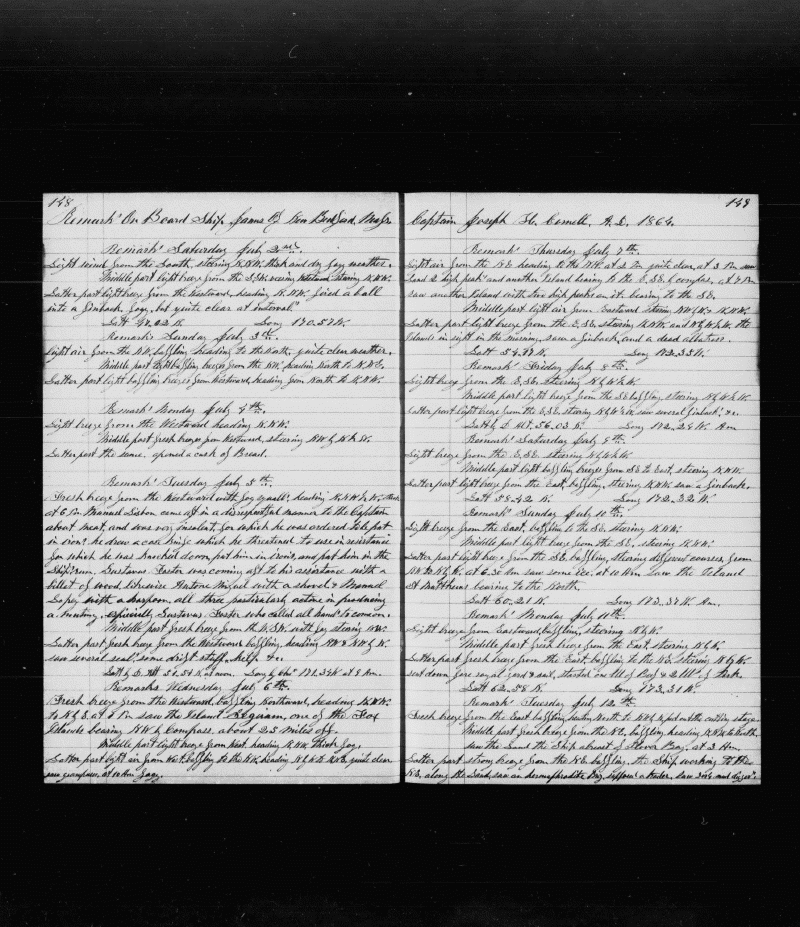 148
Remark's On Board Ship James of New Bedford, Mass
Remark's Saturday July 2nd
Light wind from the South, steering N.N.W. thick and dry foggy weather.
Middle part light breeze from the steering N.N.W.
Latter part light breeze from the Westward, heading N.N.W. fired a ball
into a finback, fogy, but quite clear at interval's
Latt Long 170.57 W.
Remarks Sunday July 3rd
light air from the NW, baffling, heading to the North, quite clear weather.
Middle part light baffling breezes from the NW, heading North to N.N.E.
Latter part light baffling breezes from Westward, heading from North to N.N.W.
Remark's Monday July 4th
Light breeze from the Westward heading N.N.W.
Middle part fresh breeze from Westward, steering NW by W
Latter part the same. opened a cask of Bread.
Remark's Tuesday July 5th
Fresh breeze from the Westward with fogy squall's, heading
at 6 Pm Manuel Lisbon came aft in a disrespectful manner to the Captain
about meat, and was very insolent, for which he was ordered to be put
in iron's he drew a and threatened to use in resistance
for which he was knocked down, put him in irons, and put him in the
Ship's run. Gustavus Foster was coming aft to his assistance with a
billet of wood, likewise Antone Miguel with a shovel & Manuel
Lopez with a harpoon, all three particularly active in producing
a mutiny, especially, Gustavus Foster who called all hand's to come on.
Middle part fresh breeze from the W.SW. with fog steering NW.
Latter part fresh breeze from the Westward, baffling, heading NW & NW by N.
saw several seal's, some drift stuff, kelp &c.
Latt by D. Rt 51.54 N. at noon. Long by Chr at 8 Am.
Remarks Wednesday July 6th
Fresh breeze from the Westward, baffling Northward, heading N.NW.
to N by E. at 6 Pm saw the Island Seguam, one of the Fox
Islands bearing NW by Compass, about 25 miles off.
Middle part light breeze from West, heading N.NW. thick fog,
Latter part light air from West, baffling to the NW, heading quite clear
saw grampus, at 10 Am fogy.
149
Captain Joseph H. Cornell, A.D. 1864.
Remark's Thursday July 7th
Light air from the N.E. heading to the NW. at 2 Pm quite clear, at 3 Pm saw
Land 2 high peak's and another Island bearing to the E.SE. by compass, at 7 Pm
saw another Island with two high peaks on it bearing to the SE.
Middle part light air from Eastward steering NW by N & N.NW.
Latter part light breeze from the E.SE. steering N.NW. and the
Islands in sight in the morning, saw a finback, and a dead albatross.
Latt Long 172.35 W.
Remark's Friday July 8th
Light breeze from the E.SE. steering
Middle part light breeze from the SE baffling, steering
Latter part light breeze from the E.SE. steering saw several finback's &c.
Latt by D. Rt. 56.03 N. Long 172.28 W. Am
Remark's Saturday July 9th
Light breeze from the E.SE. steering
Middle part light baffling breezes from SE to East, steering N.NW.
Latter part light breeze from the East, baffling, steering N.NW. saw a finback.
Latt 58.42 N. Long 172.32 W.
Remark's Sunday July 10th
Light breeze from the East, baffling to the SE. steering N.NW.
Middle part light breeze from the SE., steering N.NW.
Latter part light breeze from the SE. baffling, steering different courses, from
NW to N by W. at 6.30 Am saw some ice, at 11 Am saw the Island
St Matthews bearing to the North.
Latt 60.21 N. Long 173.37 W. Am.
Remark's Monday July 11th
Light breeze from Eastward, baffling, steering N by W.
Middle part light breeze from the East steering N by W.
Latter part fresh breeze from the East, baffling to the NE. steering N by W.
sent down fore royal yard & sail, started an bbl of Beef & 2 bbls of Pork.
Latt 62.58 N. Long 173.31 W.
Remark's Tuesday July 12th
Fresh breeze from the East baffling, North to N by E put out the cutting stage.
Middle part fresh breeze from the NE, baffling, heading N.NW. to North,
saw the Land the Ship abreast of Plover Bay, at 3 Am.
Latter part strong breeze from the N.E. baffling, the Ship working to the
N.E. along the Land, saw an hermaphrodite Brig, suppose a trader, saw